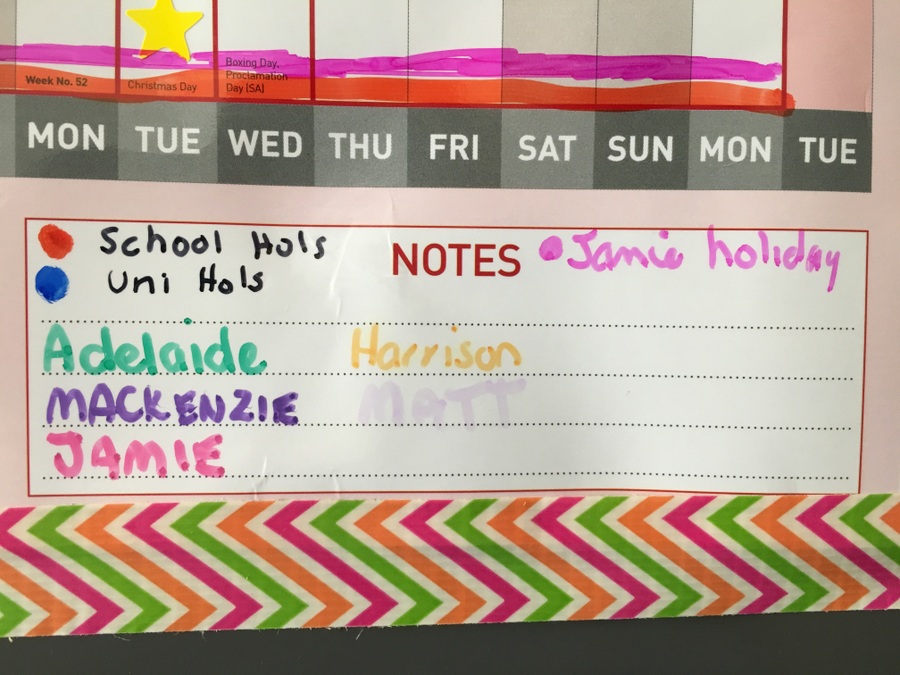 Week No. 52
Christmas Day
Boxing Day,
Proclamation
Day (SA)
MON TUE WED THU FRI SAT SUN MON TUE
School Hols NOTES Jamie holiday
Uni Hols
Adelaide Harrison
MACKENZIE MATT
JAMIE